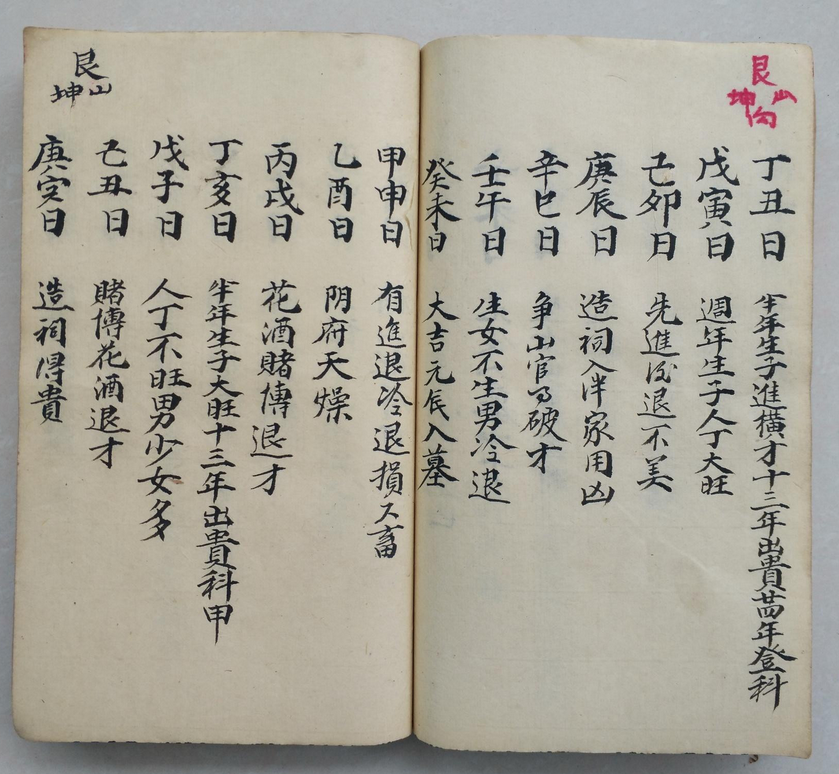 艮山
坤向
丁丑日 半年生子進横才十三年出貴廿四年登科
戊寅日 週年生子人丁大旺
己卯日 先進后退不美
庚辰日 造祠入泮家用凶
辛巳日 争山官司破才
壬午日 生女不生男冷退
癸未日 大吉元辰入墓
艮山
坤
甲申日 有進退冷退損六畜
乙酉日 阴府天燥
丙戌日 花酒賭博退才
丁亥日 半年生子大旺十三年出貴科甲
戊子日 人丁不旺男少女多
己丑日 賭博花酒退才
庚寅日 造祠得貴